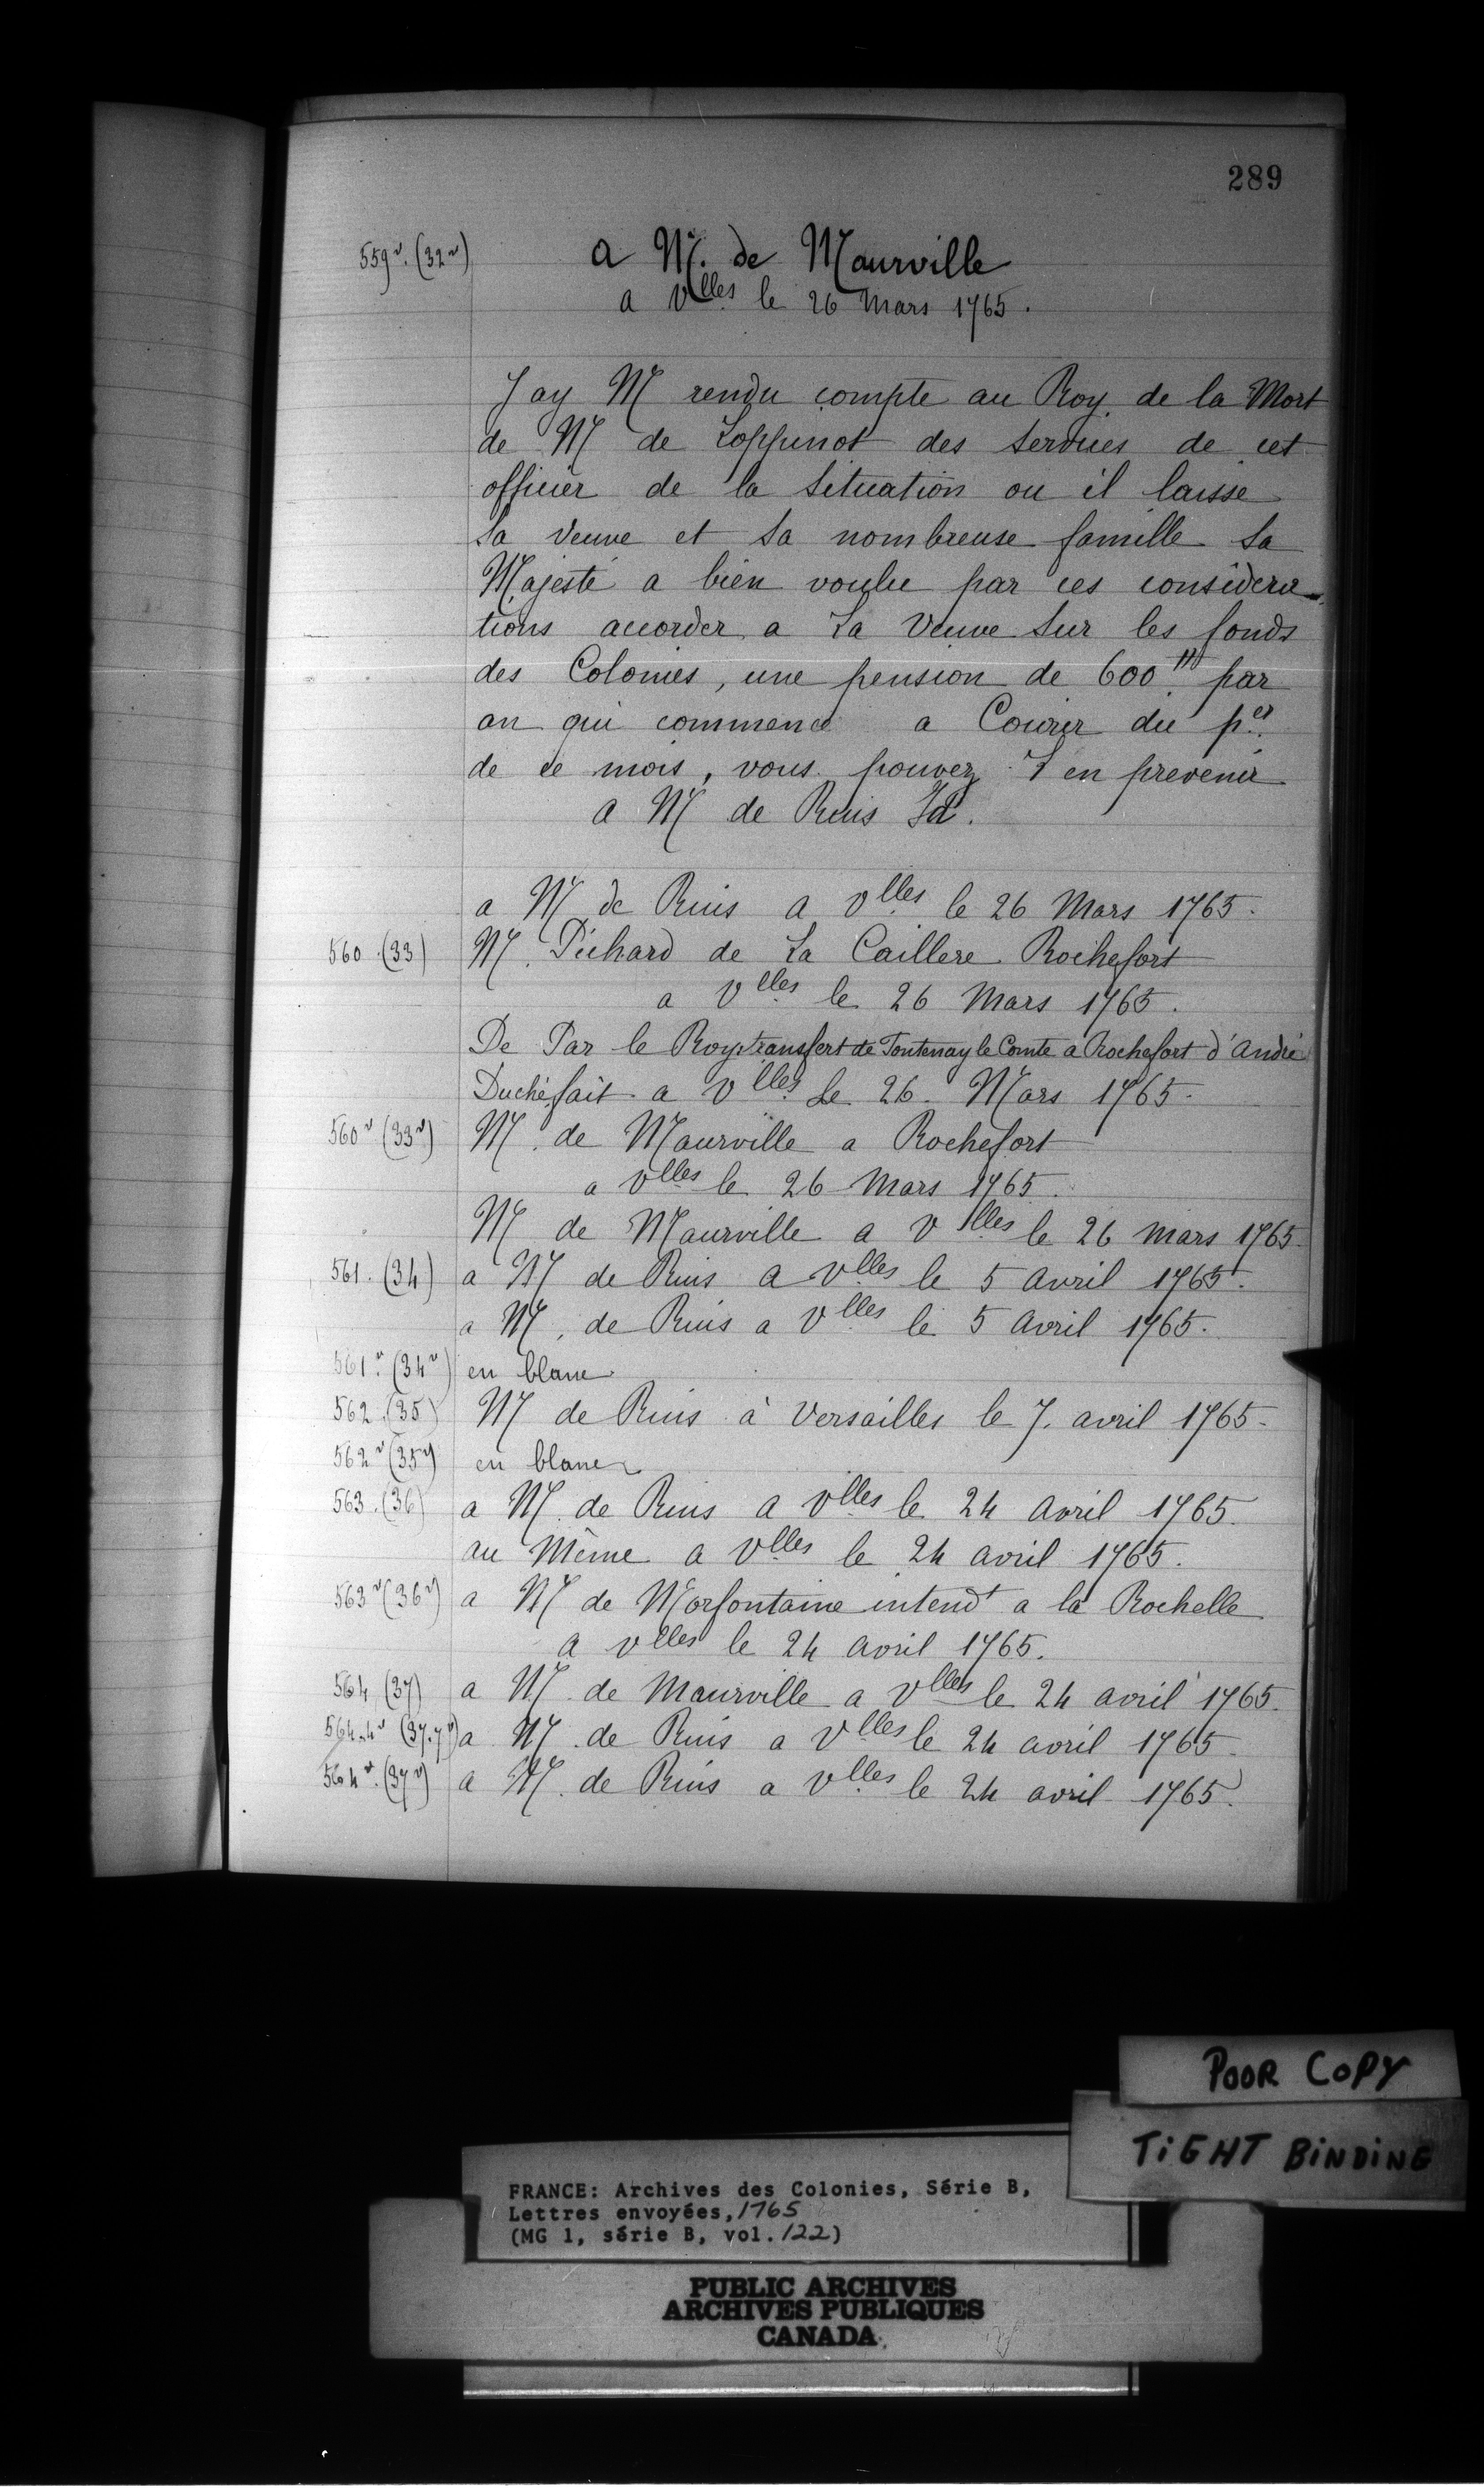 289
559v. (32v) a M. de Maurville
a Vlles le 26 Mars 1765.
Jay M rendu compte au Roy de la Mort
de M de Loppinot des services de cet
officier de la situation ou il laisse
sa veuve et sa nombreuse famille sa
Majesté a bien voulu par ces considera-
tions accorder a La Veuve sur les fonds
des Colonies, une pension de 600tt par
an qui commence a Courir du per
de ce mois, vous pouvez L en prevenir
a M de Ruis Id.
a M de Ruis a Vlles le 26 Mars 1765.
560 (33) M. Pichard de La Caillere Rochefort
a Vlles le 26 Mars 1765.
De Par le Roy transfert de Fontenay le Comte a Rochefort d'André
Duché fait a Vlles Le 26 Mars 1765.
560v (33v) M. de Maurville a Rochefort
a Vlles le 26 Mars 1765.
M de Maurville a Vlles le 26 mars 1765.
561. (34) a M de Ruis a Vlles le 5 avril 1765.
a M. de Ruis a Vlles le 5 Avril 1765.
561v. (34v) en blanc
562 (35) M de Ruis à Versailles le 7. avril 1765.
562v (35v) en blanc
563. (36) a M. de Ruis a Vlles le 24 Avril 1765.
au Même a Vlles le 24 avril 1765.
563v (36v) a M de Morfontaine intendt a la Rochelle
a Vlles le 24 avril 1765.
564 (37) a M. de Maurville a Vlles le 24 avril 1765.
a M. de Ruis a Vlles le 24 avril 1765.
564v. (37v) a M. de Ruis a Vlles le 24 avril 1765.
POOR COPY
TIGHT BINDING
FRANCE: Archives des Colonies, Série B,
Lettres envoyées, 1765
(MG 1, série B, vol. 122)
PUBLIC ARCHIVES
ARCHIVES PUBLIQUES
CANADA